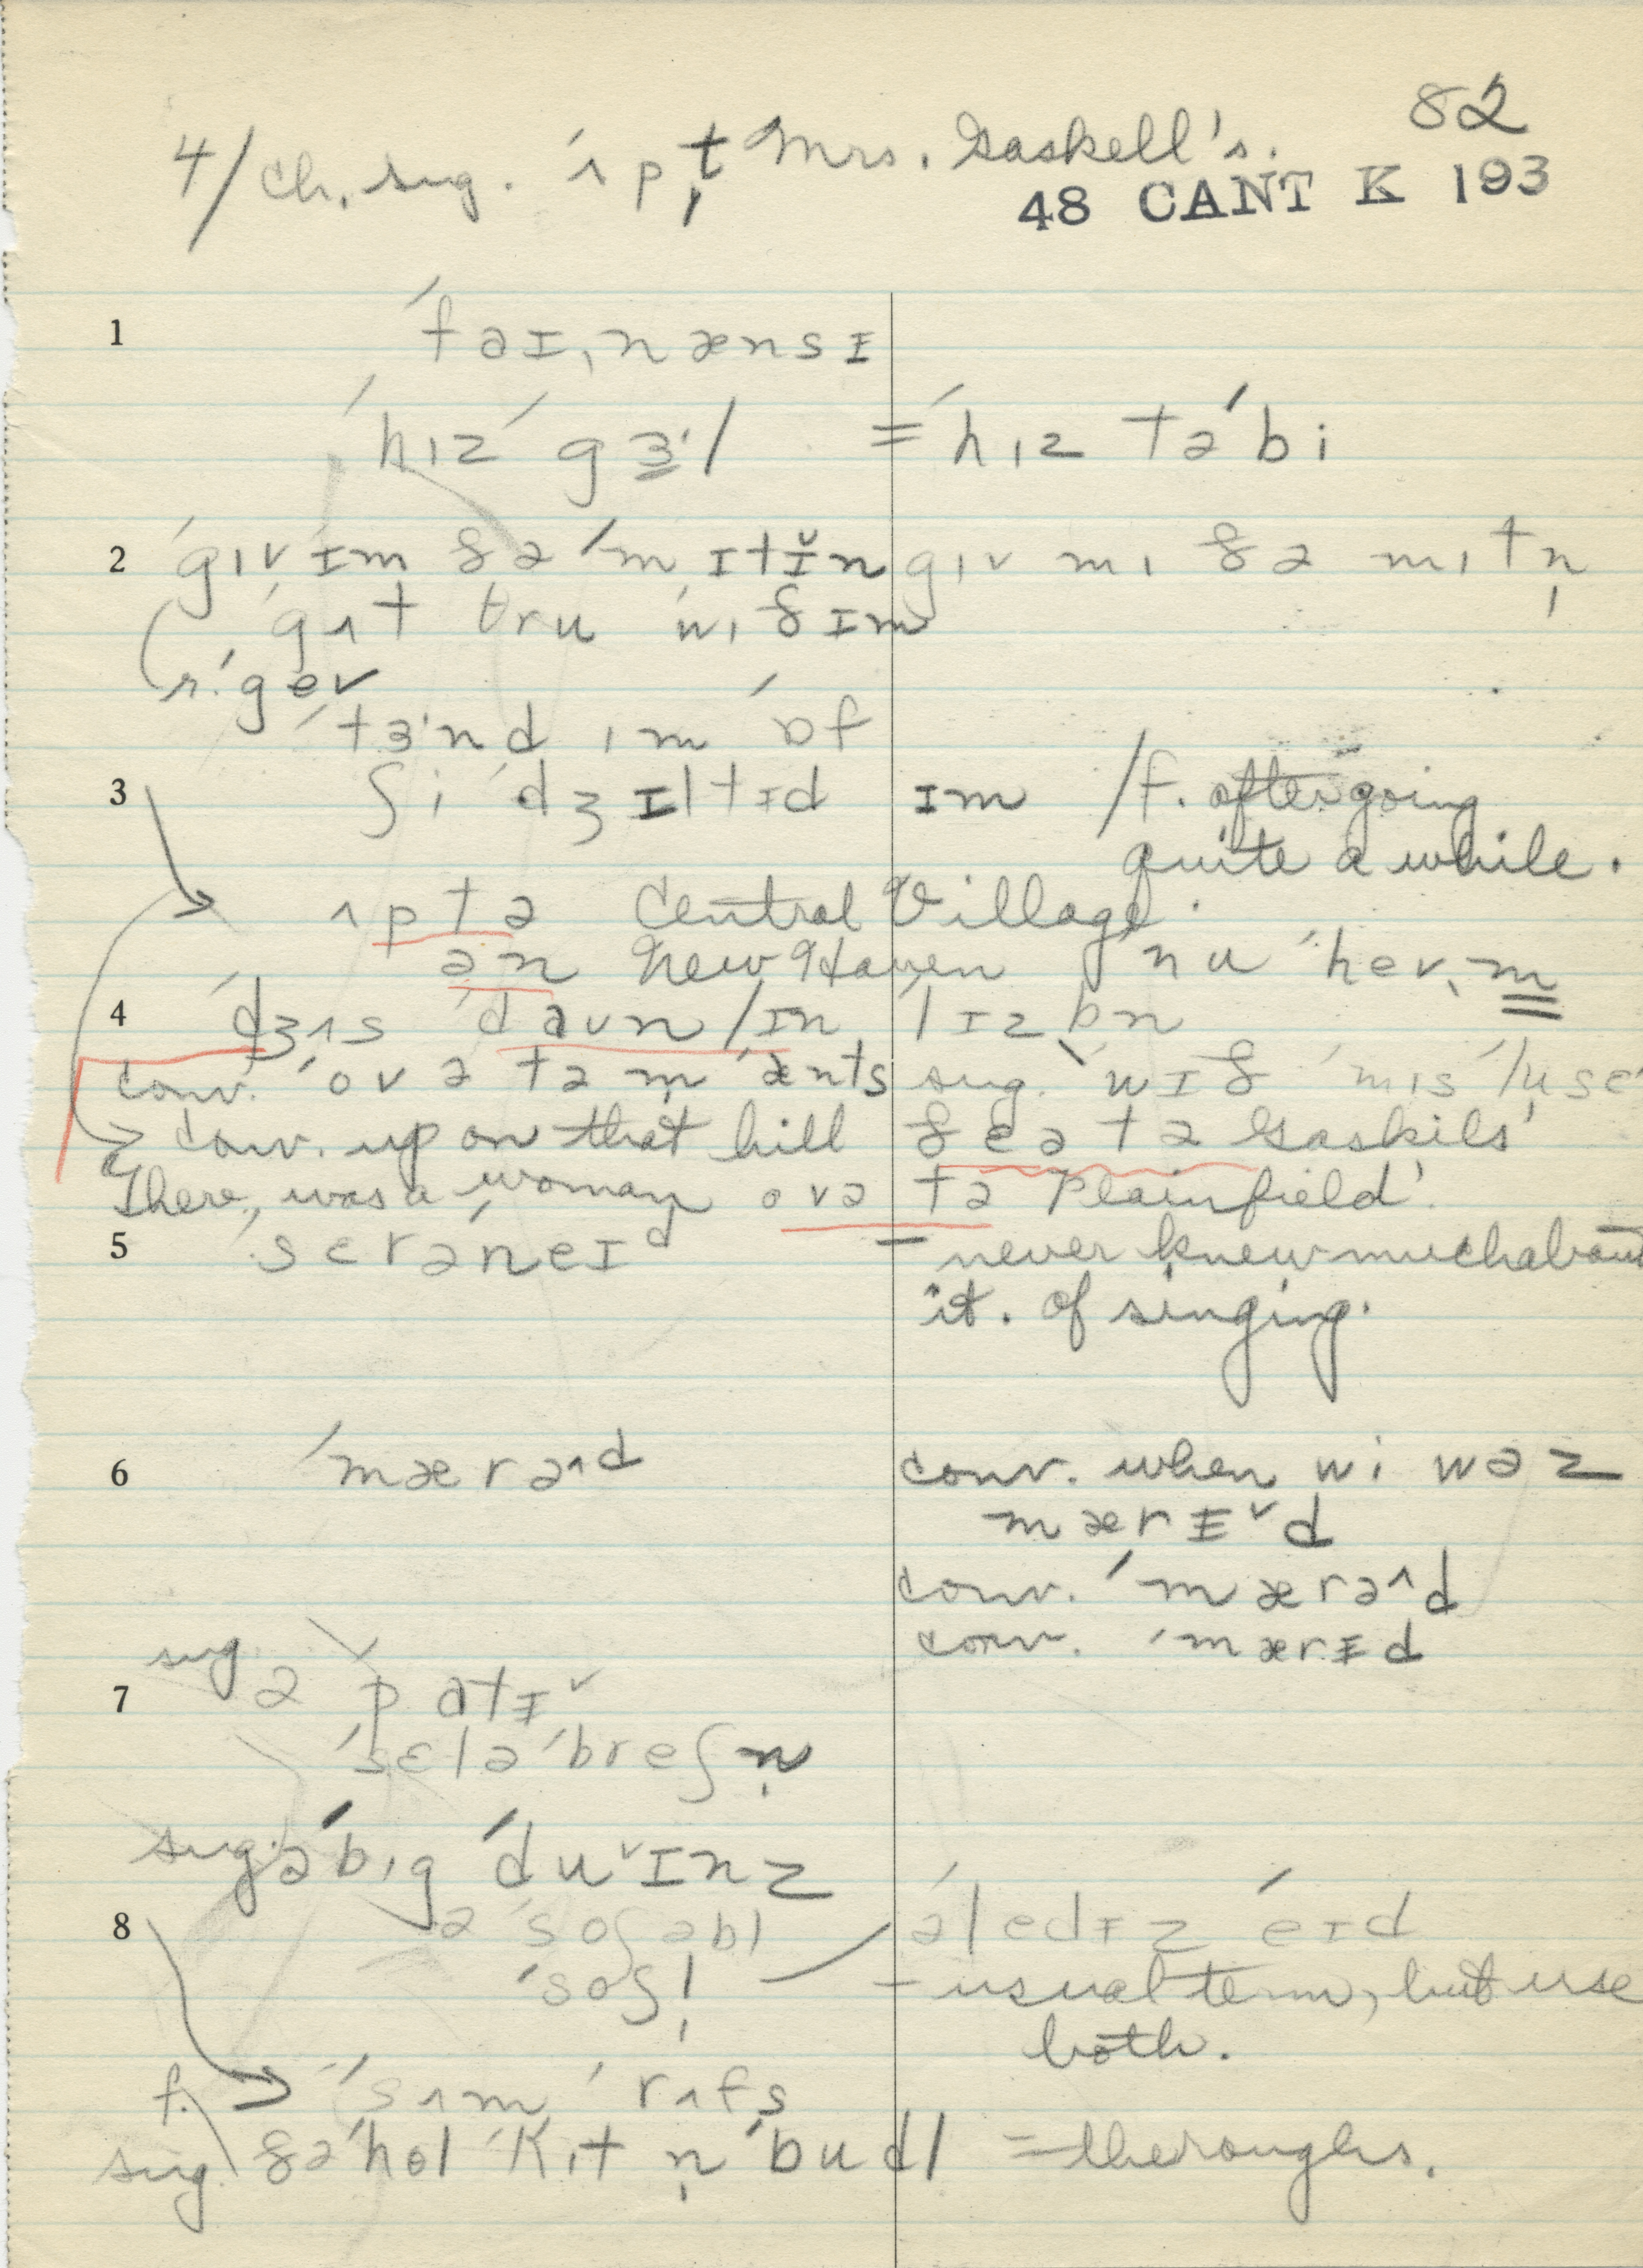 82
4/ ch. sug. ˈʌp t̩ Mrs. Gaskell's.
48 CANT K 193
1 ˈfaɪˌnænsɪ
ˈhɪz ˈgɜ˞l = ˈhɪz təˈbi
2 ˈgɪv ɪm ðə ˈmɪtɪ̆n gɪv mɪ ðə mɪtn̩
ˈgʌt θru ˈwɪð ɪm
r. ˈgev
ˈtɜ˞nd ɪm ˈɒf
3 ʃi ˈdʒɪltɪd ɪm /f. after going
quite a while.
ʌp tə Central Village.
ən New Haven ˈnu ˈhevm̩
4 ˈdʒʌs ˈdaʊn/ɪn ˈlɪzbn̩
conv. ˈovə tə m ˈænts sug. ˈwɪð ˈmɪs
conv. up on that hill ðeə tə Gaskils'
There was a woman ovə tə Plainfield'.
5 ˈsɛrəˈneɪd – never knew much about
it. of singing.
6 ˈmærə^d conv. when wi wəz
mærɪ˅d
conv. ˈmærə^d
conv. ˈmærɪd
sug.
7 ə ˈpɑtɪ˅
ˈsɛləˈbreʃn̩
sug. ə ˈbɪg ˈdu˅ɪnz
8 ə ˈsoʃəbl ə ˈledɪz ˈeɪd
ˈsoʃl̩ – usual term, but use
both.
f. ˈsʌm ˈrʌfs
sug. ðə ˈhol ˈkɪt n̩ ˈbudl = the roughs.